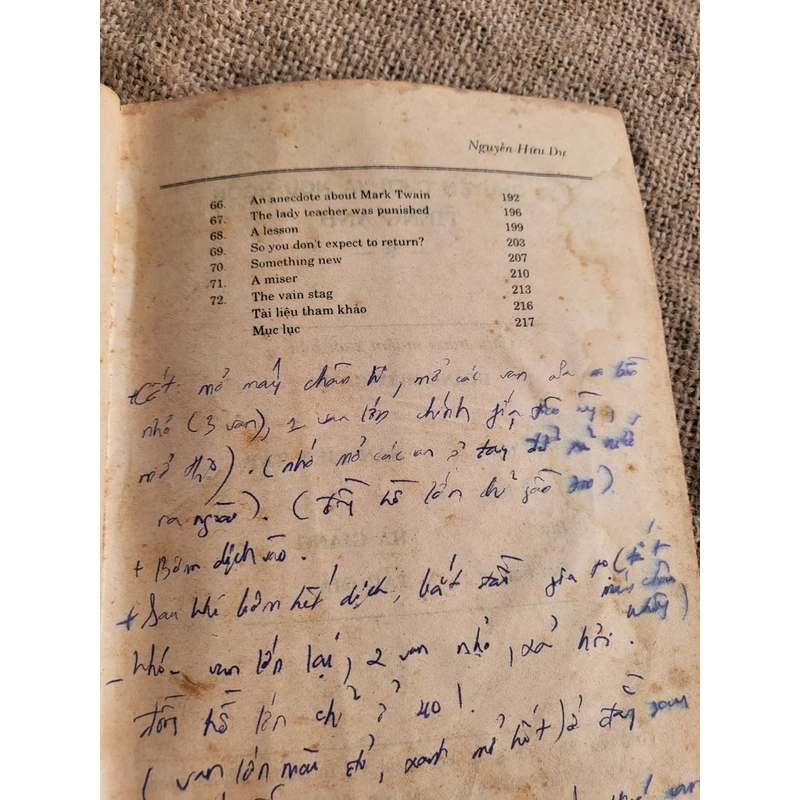 Nguyễn Hữu Dự
66. An anecdote about Mark Twain 192
67. The lady teacher was punished 196
68. A lesson 199
69. So you don't expect to return? 203
70. Something new 207
71. A miser 210
72. The vain stag 213
Tài liệu tham khảo 216
Mục lục 217
mở máy chân k, mở các van
nhỏ (3 van), 2 van lớn chính giữa
(nhớ mở các van ở tay để
ra ngoài). (đồng hồ lớn chỉ gần
+ Bơm dịch vào.
+ Sau khi bơm hết dịch, bắt đầu gia to (tắt
máy chân
- khóa van lớn lại, 2 van nhỏ, xả hơi.
đồng hồ lớn chỉ ở 40!
(van lớn màu đỏ, xanh mở hết) ở đằng sau